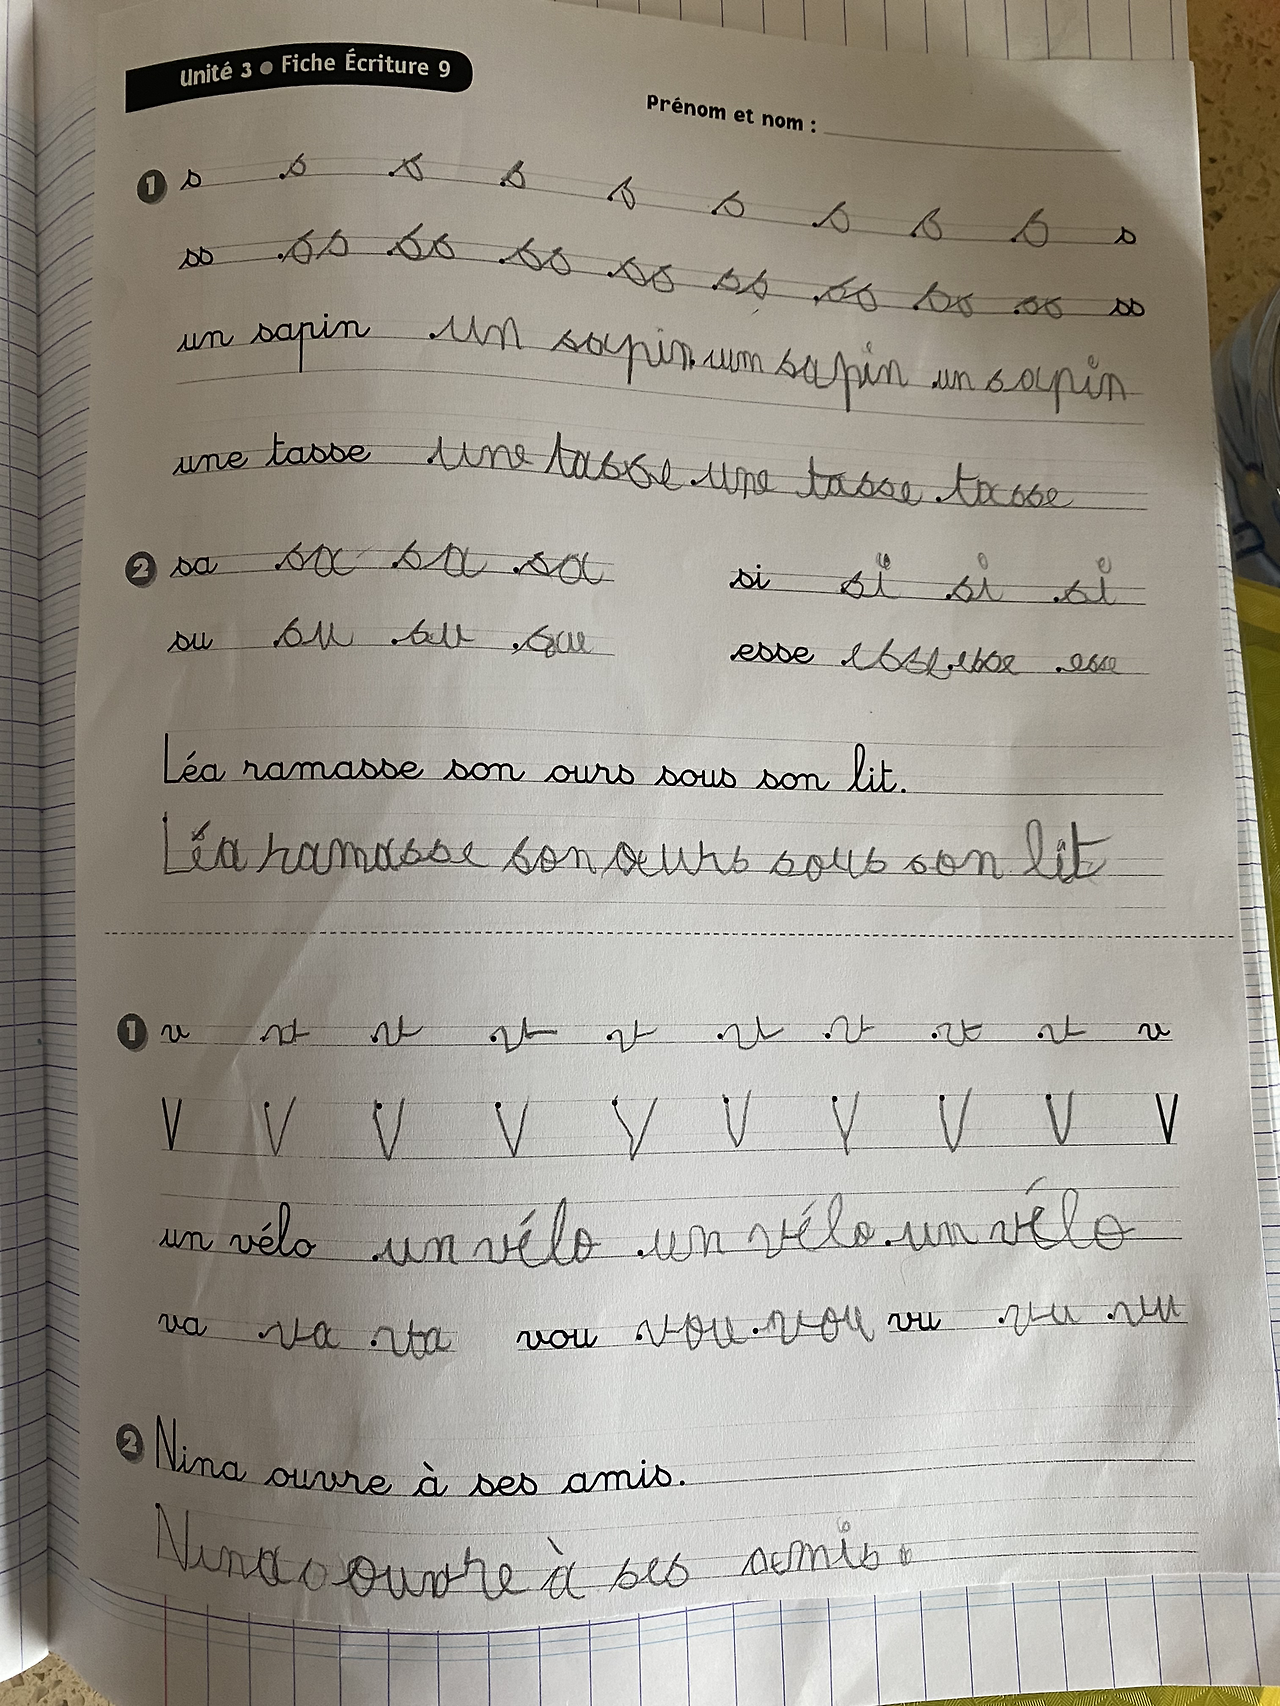 Unité 3 • Fiche Écriture 9
Prénom et nom :
1 s s s s s s s s s s
ss ss ss ss ss ss ss ss ss ss
un sapin un sapin. uum sapin un sapin
une tasse une tasse. une tasse. tasse
2 sa sa sa sa si si si si
su su su su esse esse esse esse
Léa ramasse son ours sous son lit.
Léa ramasse son oeurs sous son lit
1 v v v v v v v v v v
V V V V V V V V V V
un vélo un vélo un vélo. un vélo
va va va vou vou vou vu vu vu
2 Nina ouvre à ses amis.
Nina ouvre à ses amis.